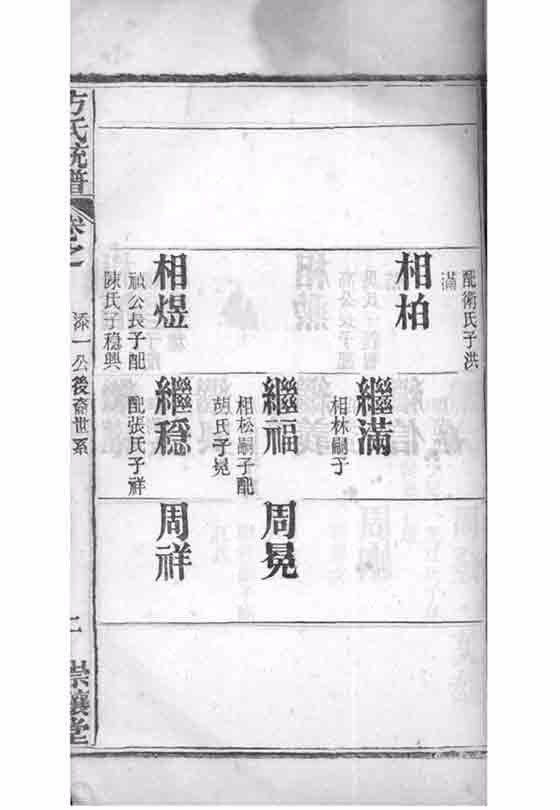 配衛氏子洪
滿
相柏
相煜
禎公長子配
陳氏子穩興
繼滿
相林嗣子
繼福
相松嗣子配
胡氏子冕
繼穩
配張氏子祥
周冕
周祥
方氏統譜
卷之
添一公後裔世系
崇讓堂